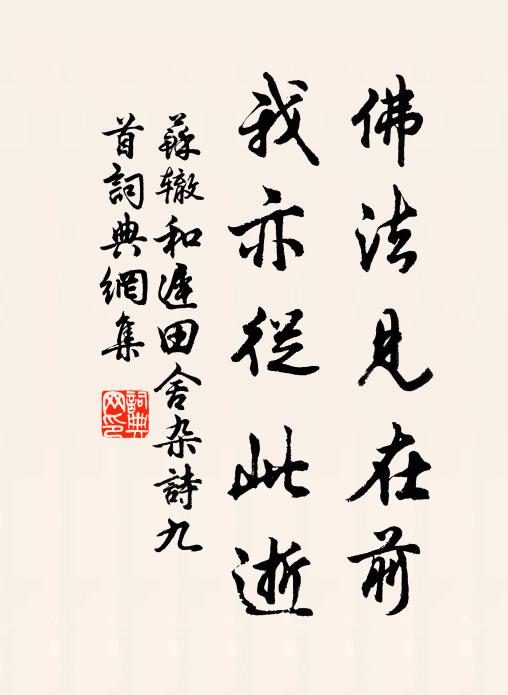 佛法見在前
我亦從此逝
蘇辙和遲田舍杂詩九
首詞典網集
詞典
网印